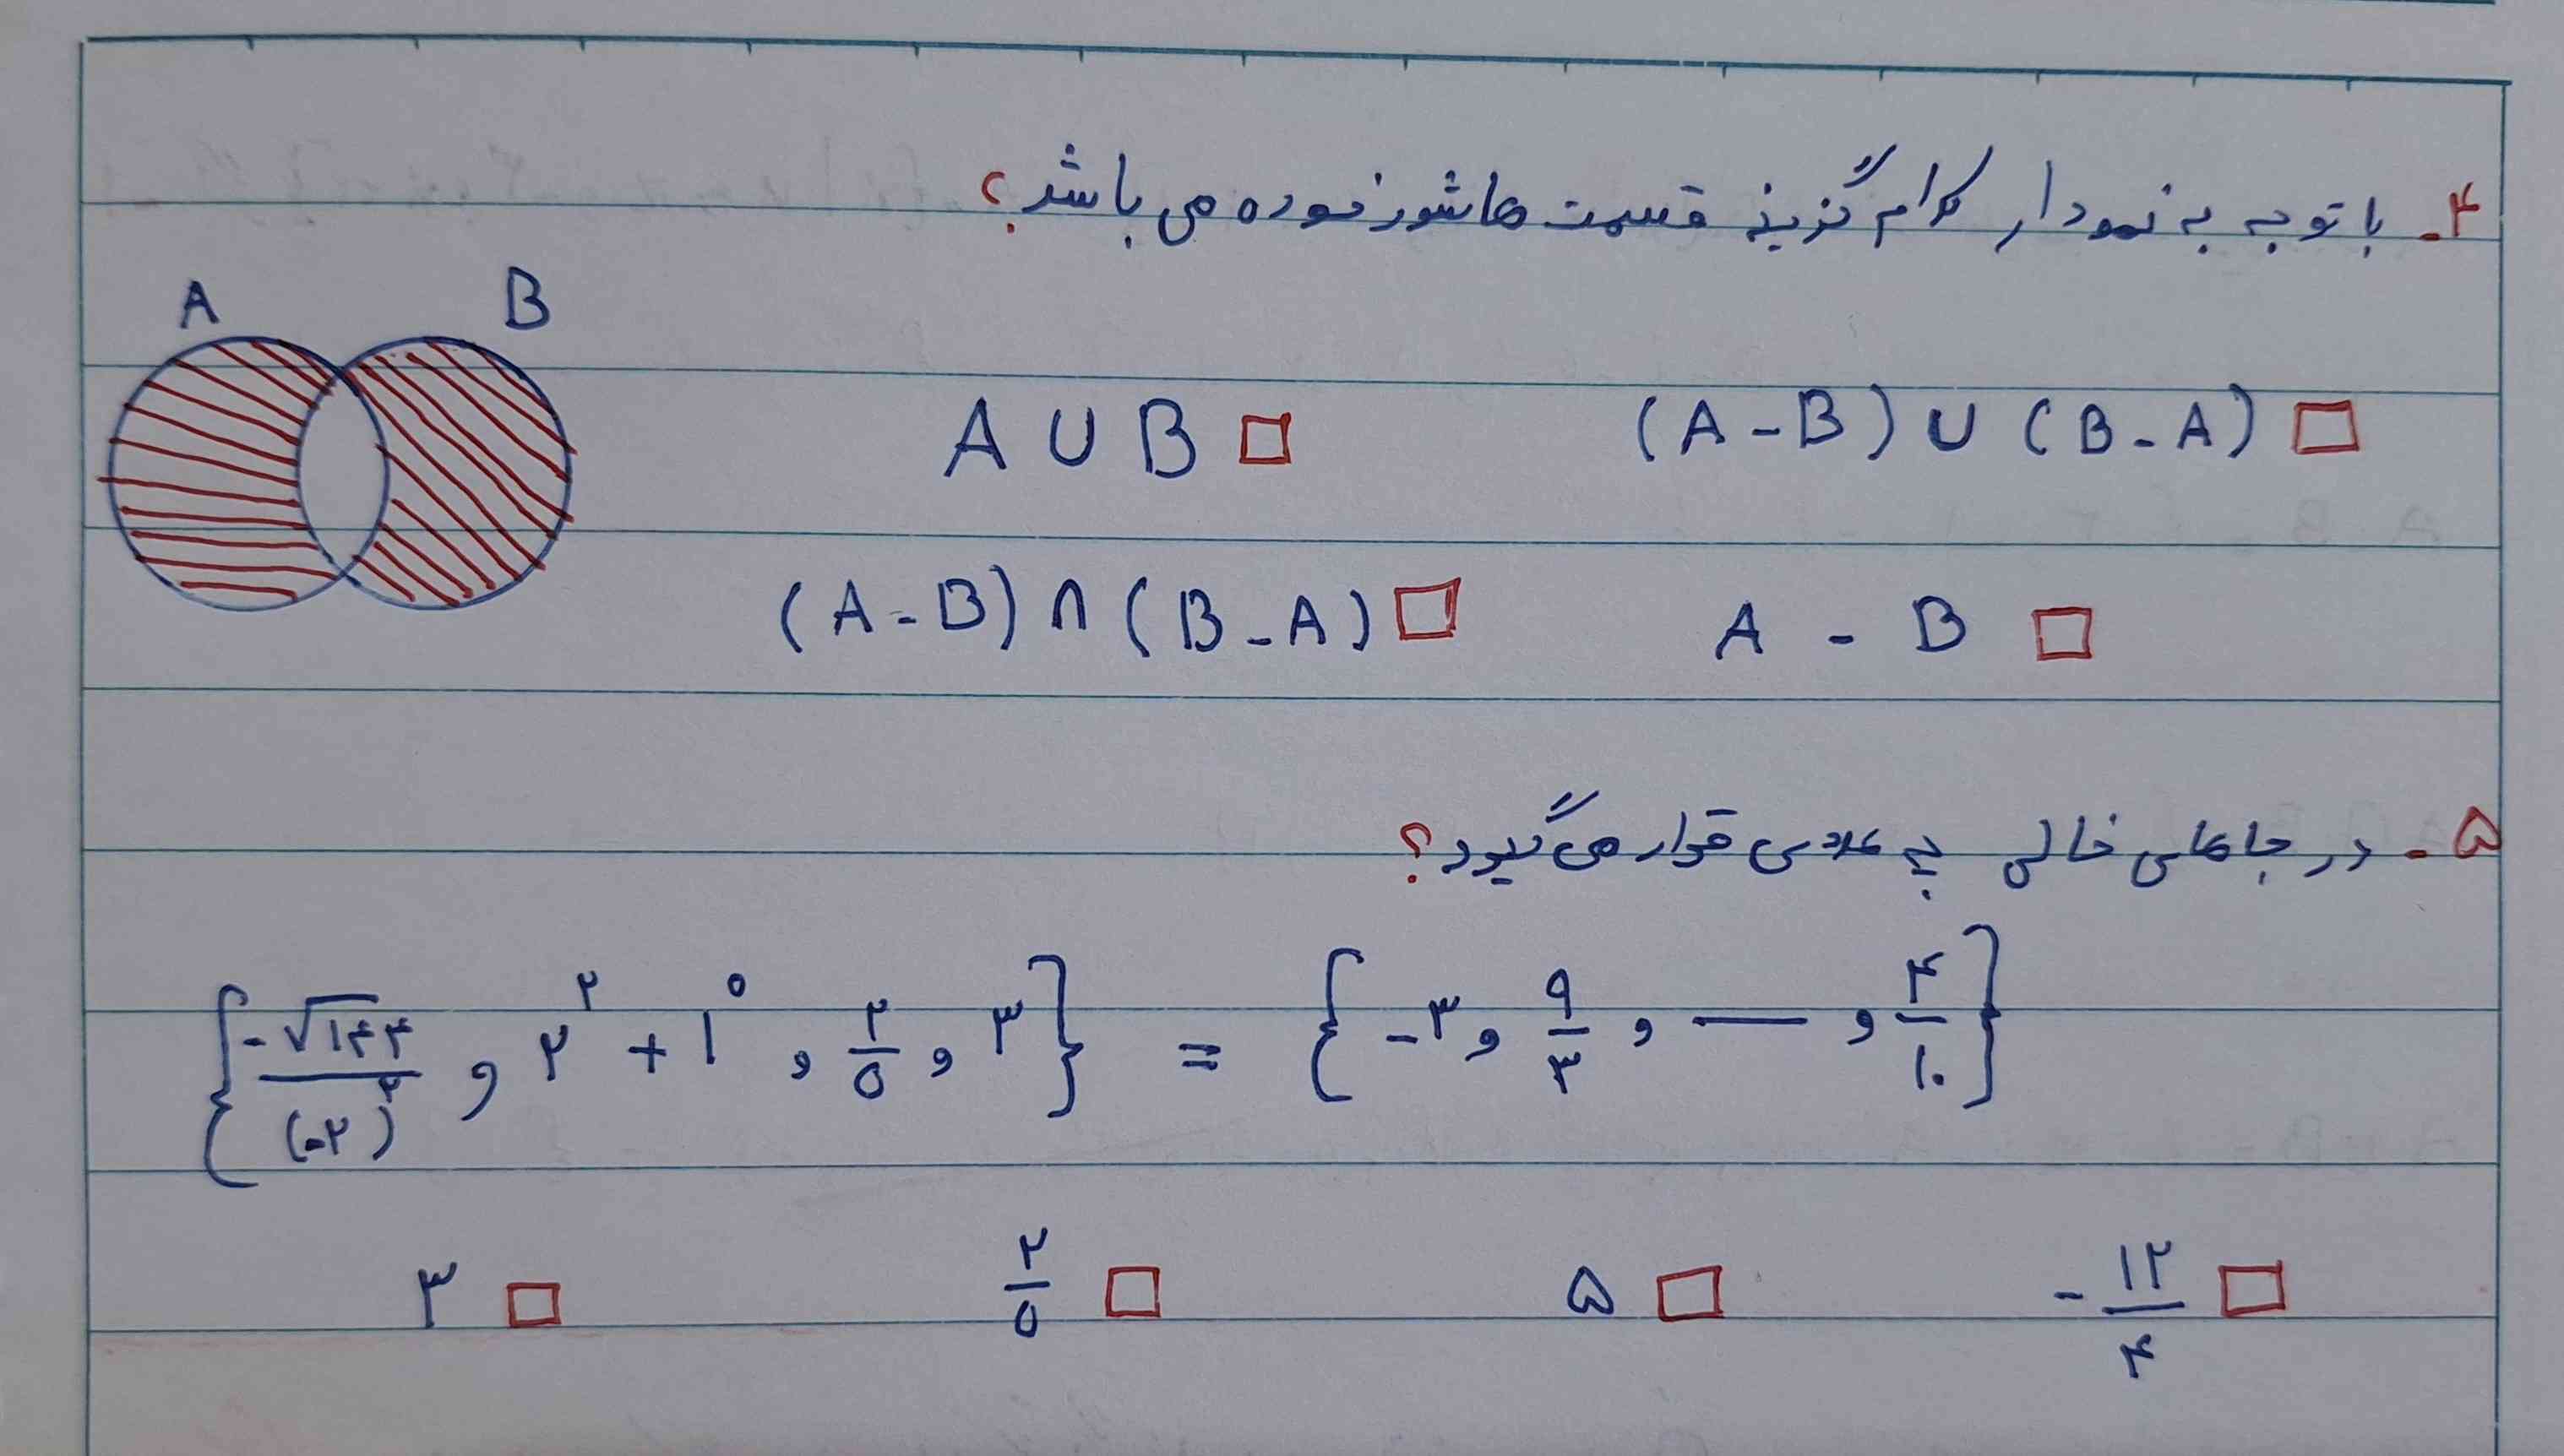 ۴. با توجه به نمودار کدام گزینه قسمت هاشور خورده می باشد؟
A B
□ (A - B) ∪ (B - A) □ A ∪ B
□ A - B □ (A - B) ∩ (B - A)
۵. در جاهای خالی چه عددی قرار می گیرد؟
{-√۱۴۴/(-۲)^۲ , ۲^۲ + ۱^۵ , ۲/۵ , ۳} = {-۳ , ۹/۳ , — , ۴/۱۰}
□ -۱۲/۴ □ ۵ □ ۲/۵ □ ۳